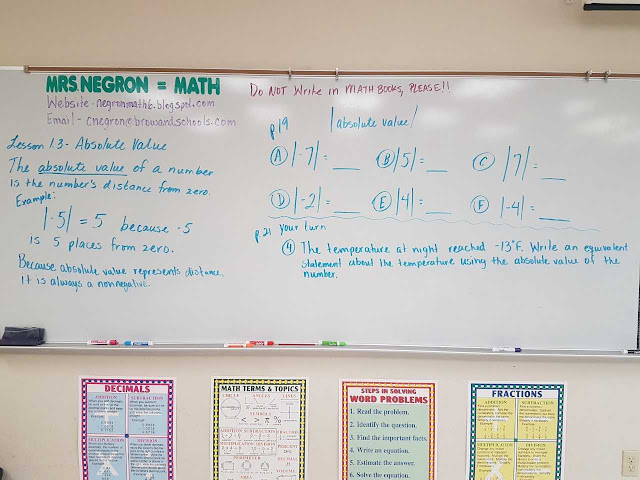 MRS. NEGRON = MATH
Website - negronmath6.blogspot.com
Email - cnegron@browardschools.com
Do NOT Write in MATH BOOKS, PLEASE!!
Lesson 1.3 - Absolute Value
The absolute value of a number
is the number's distance from zero.
Example:
|-5| = 5 because -5
is 5 places from zero.
Because absolute value represents distance,
it is always a nonnegative.
p.19
|absolute value|
A |-7| = __ B |5| = __ C |7| = __
D |-2| = __ E |4| = __ F |-4| = __
p.21 Your turn
4 The temperature at night reached -13°F. Write an equivalent
statement about the temperature using the absolute value of the
number.
DECIMALS
ADDITION
SUBTRACTION
MULTIPLICATION
DIVISION
MATH TERMS & TOPICS
CIRCLE ANGLES LINES
STEPS IN SOLVING
WORD PROBLEMS
1. Read the problem.
2. Identify the question.
3. Find the important facts.
4. Write an equation.
5. Estimate the answer.
6. Solve the equation.
FRACTIONS
ADDITION
SUBTRACTION
MULTIPLICATION
DIVISION